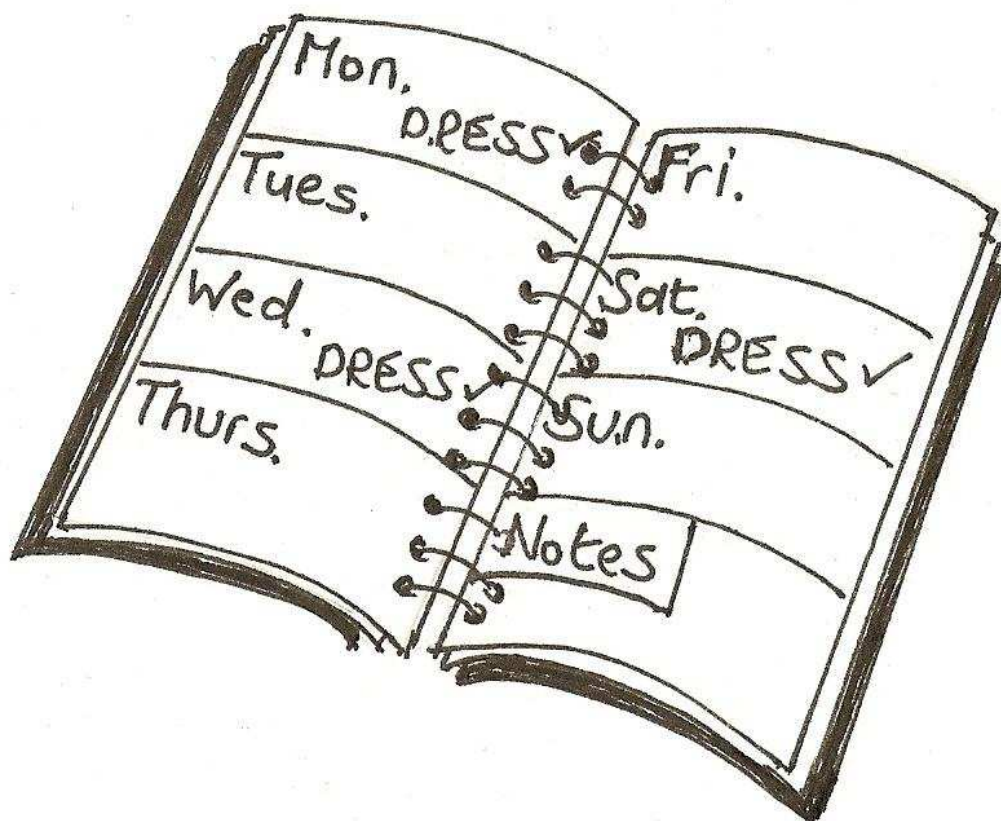 Mon.
DRESS✓
Tues.
Wed.
DRESS✓
Thurs.
Fri.
Sat.
DRESS✓
Sun.
Notes